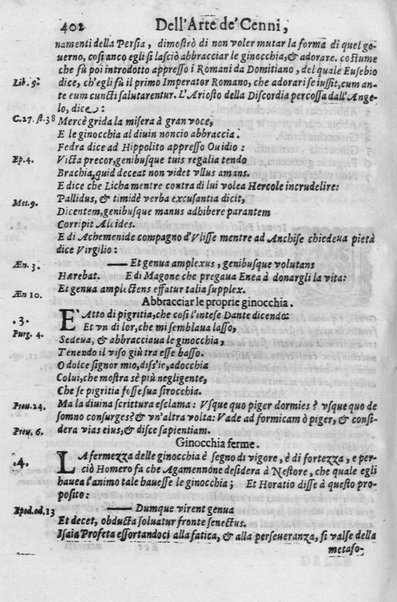 402 Dell'Arte de' Cenni,
namenti della Persia, dimostrò di non voler mutar la forma di quel go-
uerno, cosi anco egli si lasciò abbracciar le ginocchia, & adorare. costume
che fù poi introdotto appresso i Romani da Domitiano, del quale Eusebio
Lib. 9. dice, ch'egli fù il primo Imperator Romano, che adorarise iussit, cum an-
te eum cuncti salutarentur. L'Ariosto della Discordia percossa dall'Ange-
lo, dice.
C. 27. st. 38 Mercè grida la misera à gran voce,
E le ginocchia al diuin noncio abbraccia.
Fedra dice ad Hippolito appresso Ouidio:
Ep. 4. Victa precor, genibusque tuis regalia tendo
Brachia, quid deceat non videt vllus amans.
E dice che Licha mentre contra di lui volea Hercole incrudelire:
Met. 9. Pallidus, & timidè verba excusantia dicit,
Dicentem, genibusque manus adhibere parantem
Corripit Alcides.
E di Achemenide compagno d'Vlisse mentre ad Anchise chiedeua pietà
dice Virgilio:
Æn. 3. —— Et genua amplexus, genibusque volutans
Harebat. E di Magone che pregaua Enea à donargli la vita:
Æn 10. Et genua amplectens effatur talia supplex.
Abbracciar le proprie ginocchia.
.3. E' Atto di pigritia, che così l'intese Dante dicendo:
Purg. 4. Et vn di lor, che mi semblaua lasso,
Sedeua, & abbracciaua le ginocchia,
Tenendo il viso giù tra esse basso.
O dolce signor mio, diss'ie, adocchia
Colui, che mostra sè più negligente,
Che se pigritia fosse sua sirocchia.
Prou. 24. Ma la diuina scrittura esclama: Vsque quo piger dormies? vsque quo de
somno consurges? & vn'altra volta: Vade ad formicam ò piger, & consi-
Prou. 6. dera vias eius, & disce sapientiam.
Ginocchia ferme.
.4. LA fermezza delle ginocchia è segno di vigore, è di fortezza, e per-
ciò Homero fa che Agamennone desidera à Nestore, che quale egli
haueа l'animo tale hauesse le ginocchia; Et Horatio disse à questo pro-
posito:
Epod. od. 13 —— Dumque virent genua
Et decet, obducta soluatur fronte senectus.
Isaia Profeta essortandoci alla fatica, & alla perseueranza, si valse della
metafo-